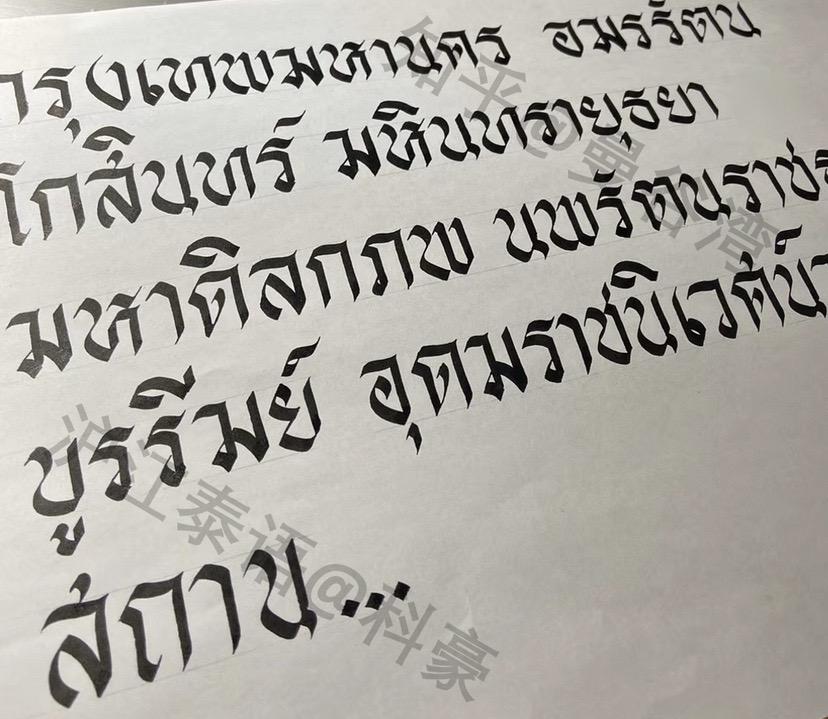 กรุงเทพมหานคร อมรรัตน
โกสินทร์ มหินทรายุธยา
มหาดิลกภพ นพรัตนราชธ
บูรรีมย์ อุดมราชนิเวศน์ม
สถาน...
知乎@曼谷湾
沪江泰语@科豪